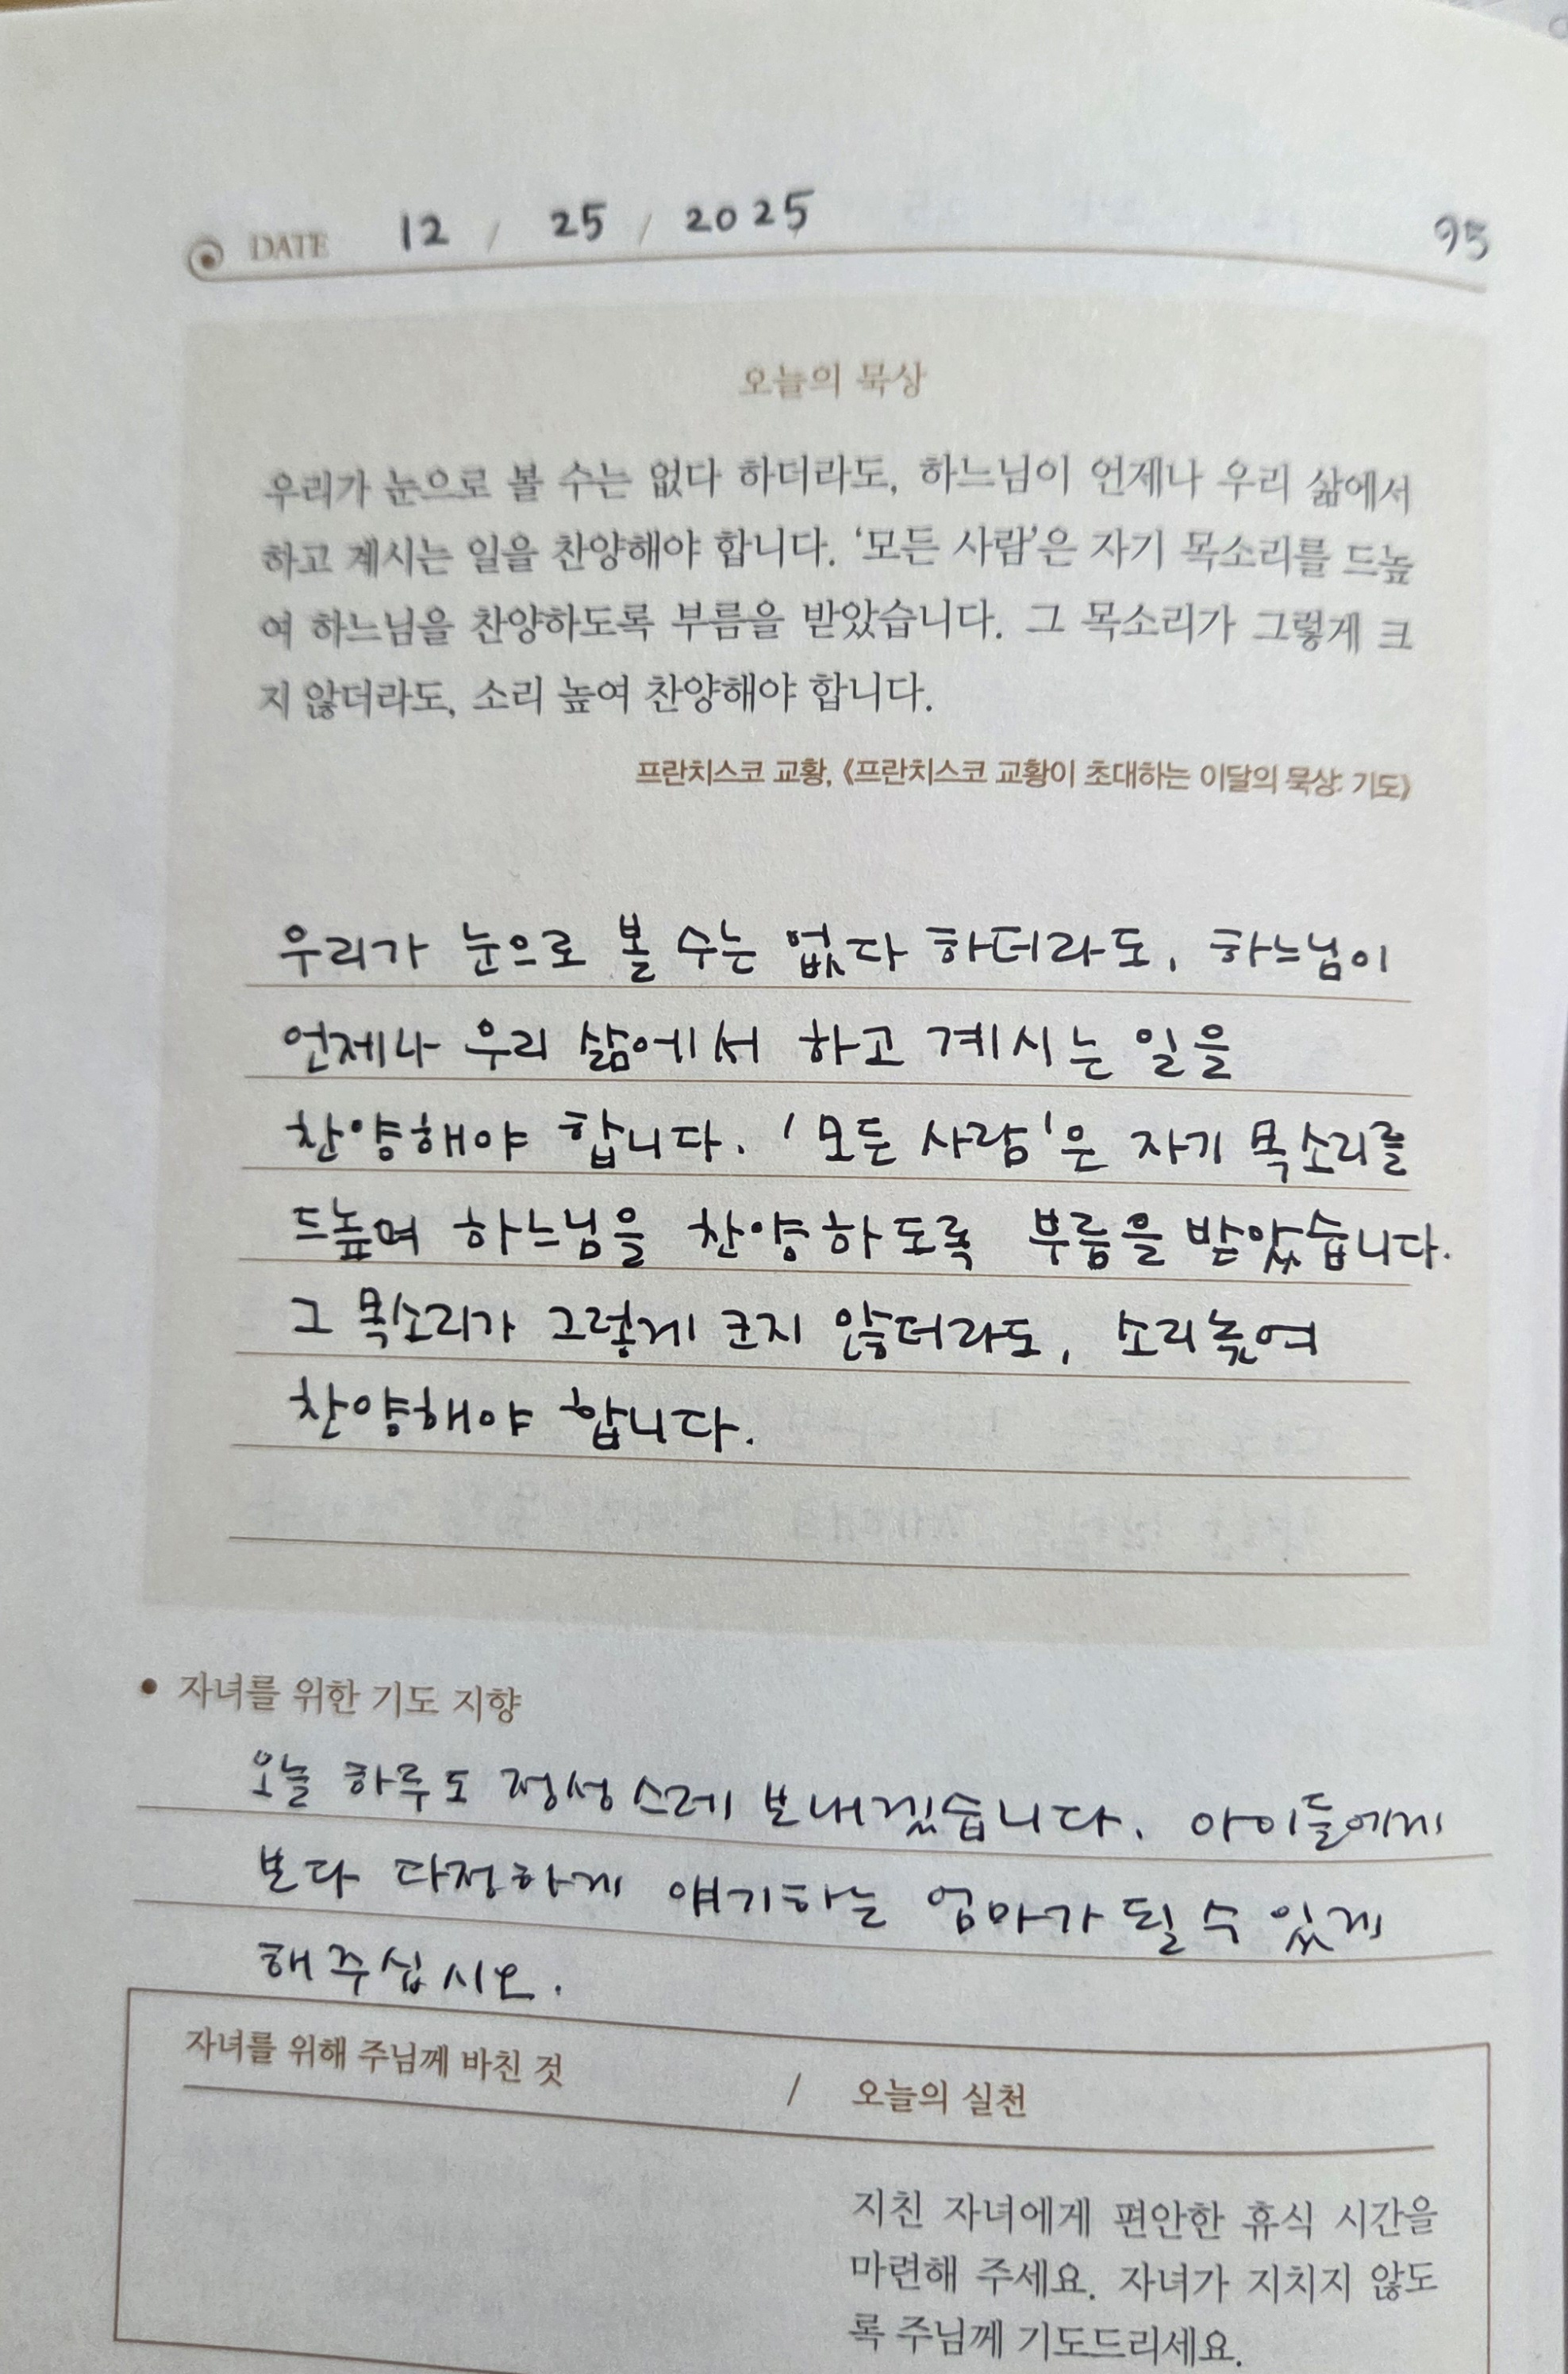 DATE 12 / 25 / 2025 95
오늘의 묵상
우리가 눈으로 볼 수는 없다 하더라도, 하느님이 언제나 우리 삶에서
하고 계시는 일을 찬양해야 합니다. ‘모든 사람’은 자기 목소리를 드높
여 하느님을 찬양하도록 부름을 받았습니다. 그 목소리가 그렇게 크
지 않더라도, 소리 높여 찬양해야 합니다.
프란치스코 교황, 《프란치스코 교황이 초대하는 이달의 묵상: 기도》
우리가 눈으로 볼 수는 없다 하더라도, 하느님이
언제나 우리 삶에서 하고 계시는 일을
찬양해야 합니다. '모든 사람'은 자기 목소리를
드높여 하느님을 찬양하도록 부름을 받았습니다.
그 목소리가 그렇게 크지 않더라도, 소리높여
찬양해야 합니다.
• 자녀를 위한 기도 지향
오늘 하루도 정성스레 보내겠습니다. 아이들에게
보다 다정하게 얘기하는 엄마가 될 수 있게
해주십시오.
자녀를 위해 주님께 바친 것 / 오늘의 실천
지친 자녀에게 편안한 휴식 시간을
마련해 주세요. 자녀가 지치지 않도
록 주님께 기도드리세요.